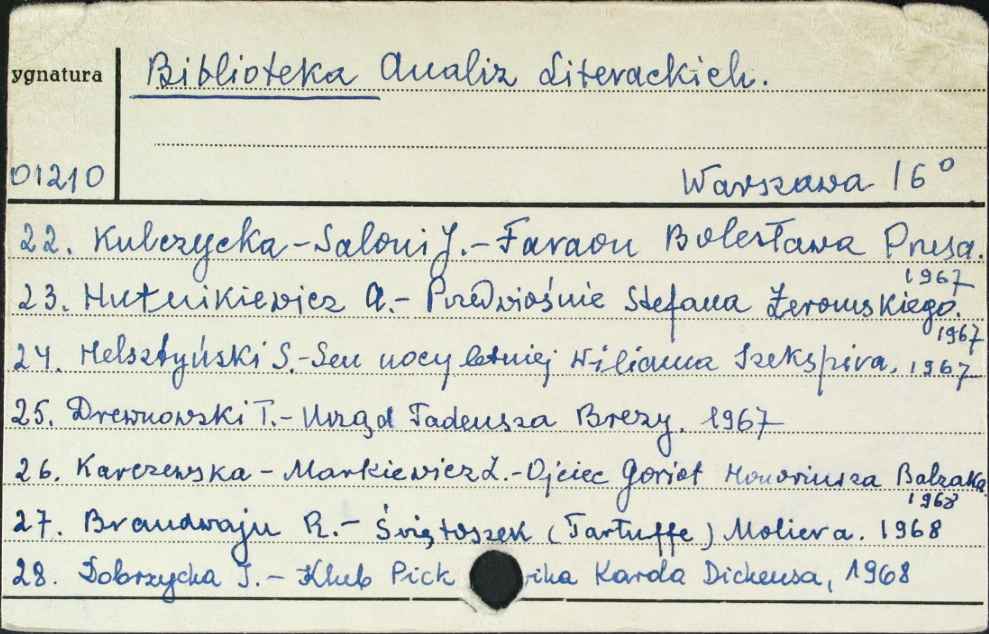 ygnatura
Biblioteka Analiz Literackich.
01210
Warszawa 16°
22. Kulczycka-Saloni J.- Faraon Bolesława Prusa.
1967
23. Hutnikiewicz A.- Przedwiośnie Stefana Żeromskiego.
1967
24. Helsztyński S.-Sen nocy letniej Wiliama Szekspira, 1967
25. Drewnowski T.- Urząd Tadeusza Brezy. 1967
26. Karczewska-Markiewicz Z.-Ojciec Goriot Honoriusza Balzaka
1968
27. Brandwajn R.- Świętoszek (Tartuffe) Moliera. 1968
28. Dobrzycka I.- Klub Pick wika Karola Dickensa, 1968